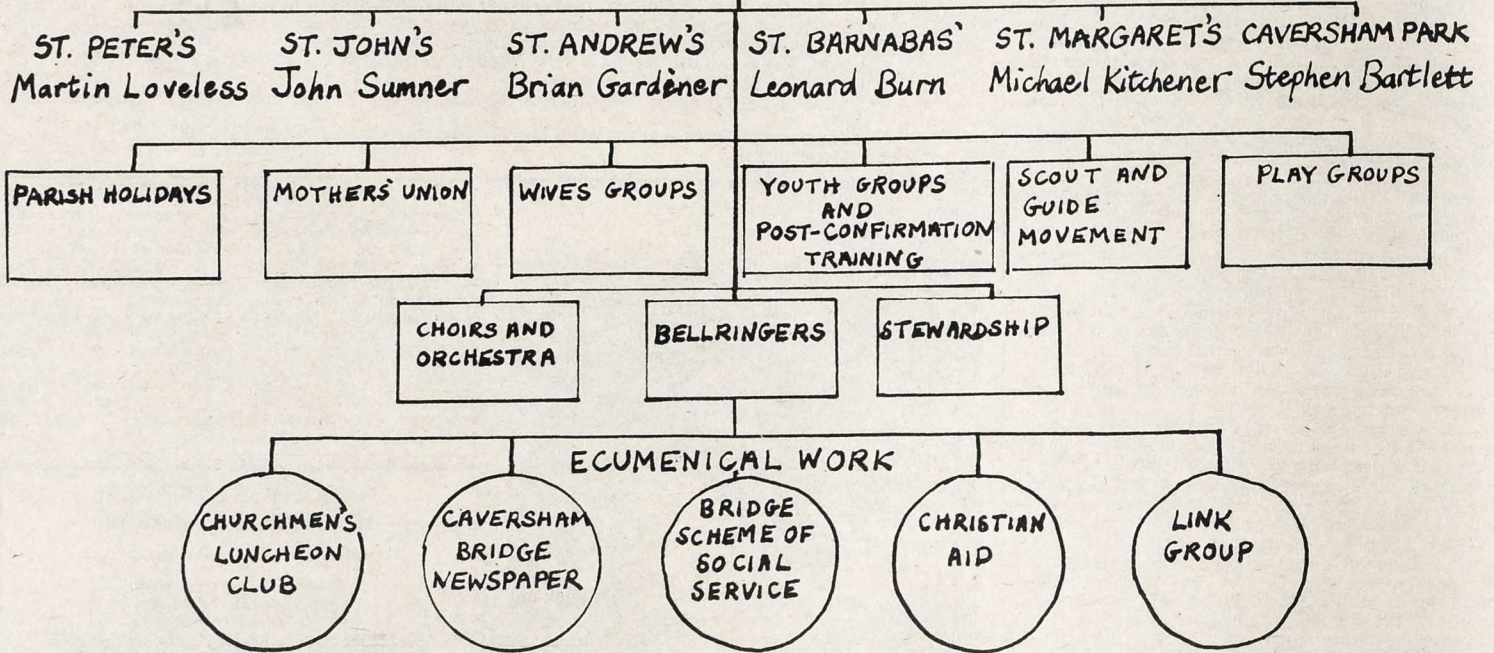 ST. PETER'S
Martin Loveless
ST. JOHN'S
John Sumner
ST. ANDREW'S
Brian Gardener
ST. BARNABAS'
Leonard Burn
ST. MARGARET'S
Michael Kitchener
CAVERSHAM PARK
Stephen Bartlett
PARISH HOLIDAYS
MOTHERS' UNION
WIVES GROUPS
YOUTH GROUPS
AND
POST-CONFIRMATION
TRAINING
SCOUT AND
GUIDE
MOVEMENT
PLAY GROUPS
CHOIRS AND
ORCHESTRA
BELLRINGERS
STEWARDSHIP
ECUMENICAL WORK
CHURCHMEN'S
LUNCHEON
CLUB
CAVERSHAM
BRIDGE
NEWSPAPER
BRIDGE
SCHEME OF
SOCIAL
SERVICE
CHRISTIAN
AID
LINK
GROUP